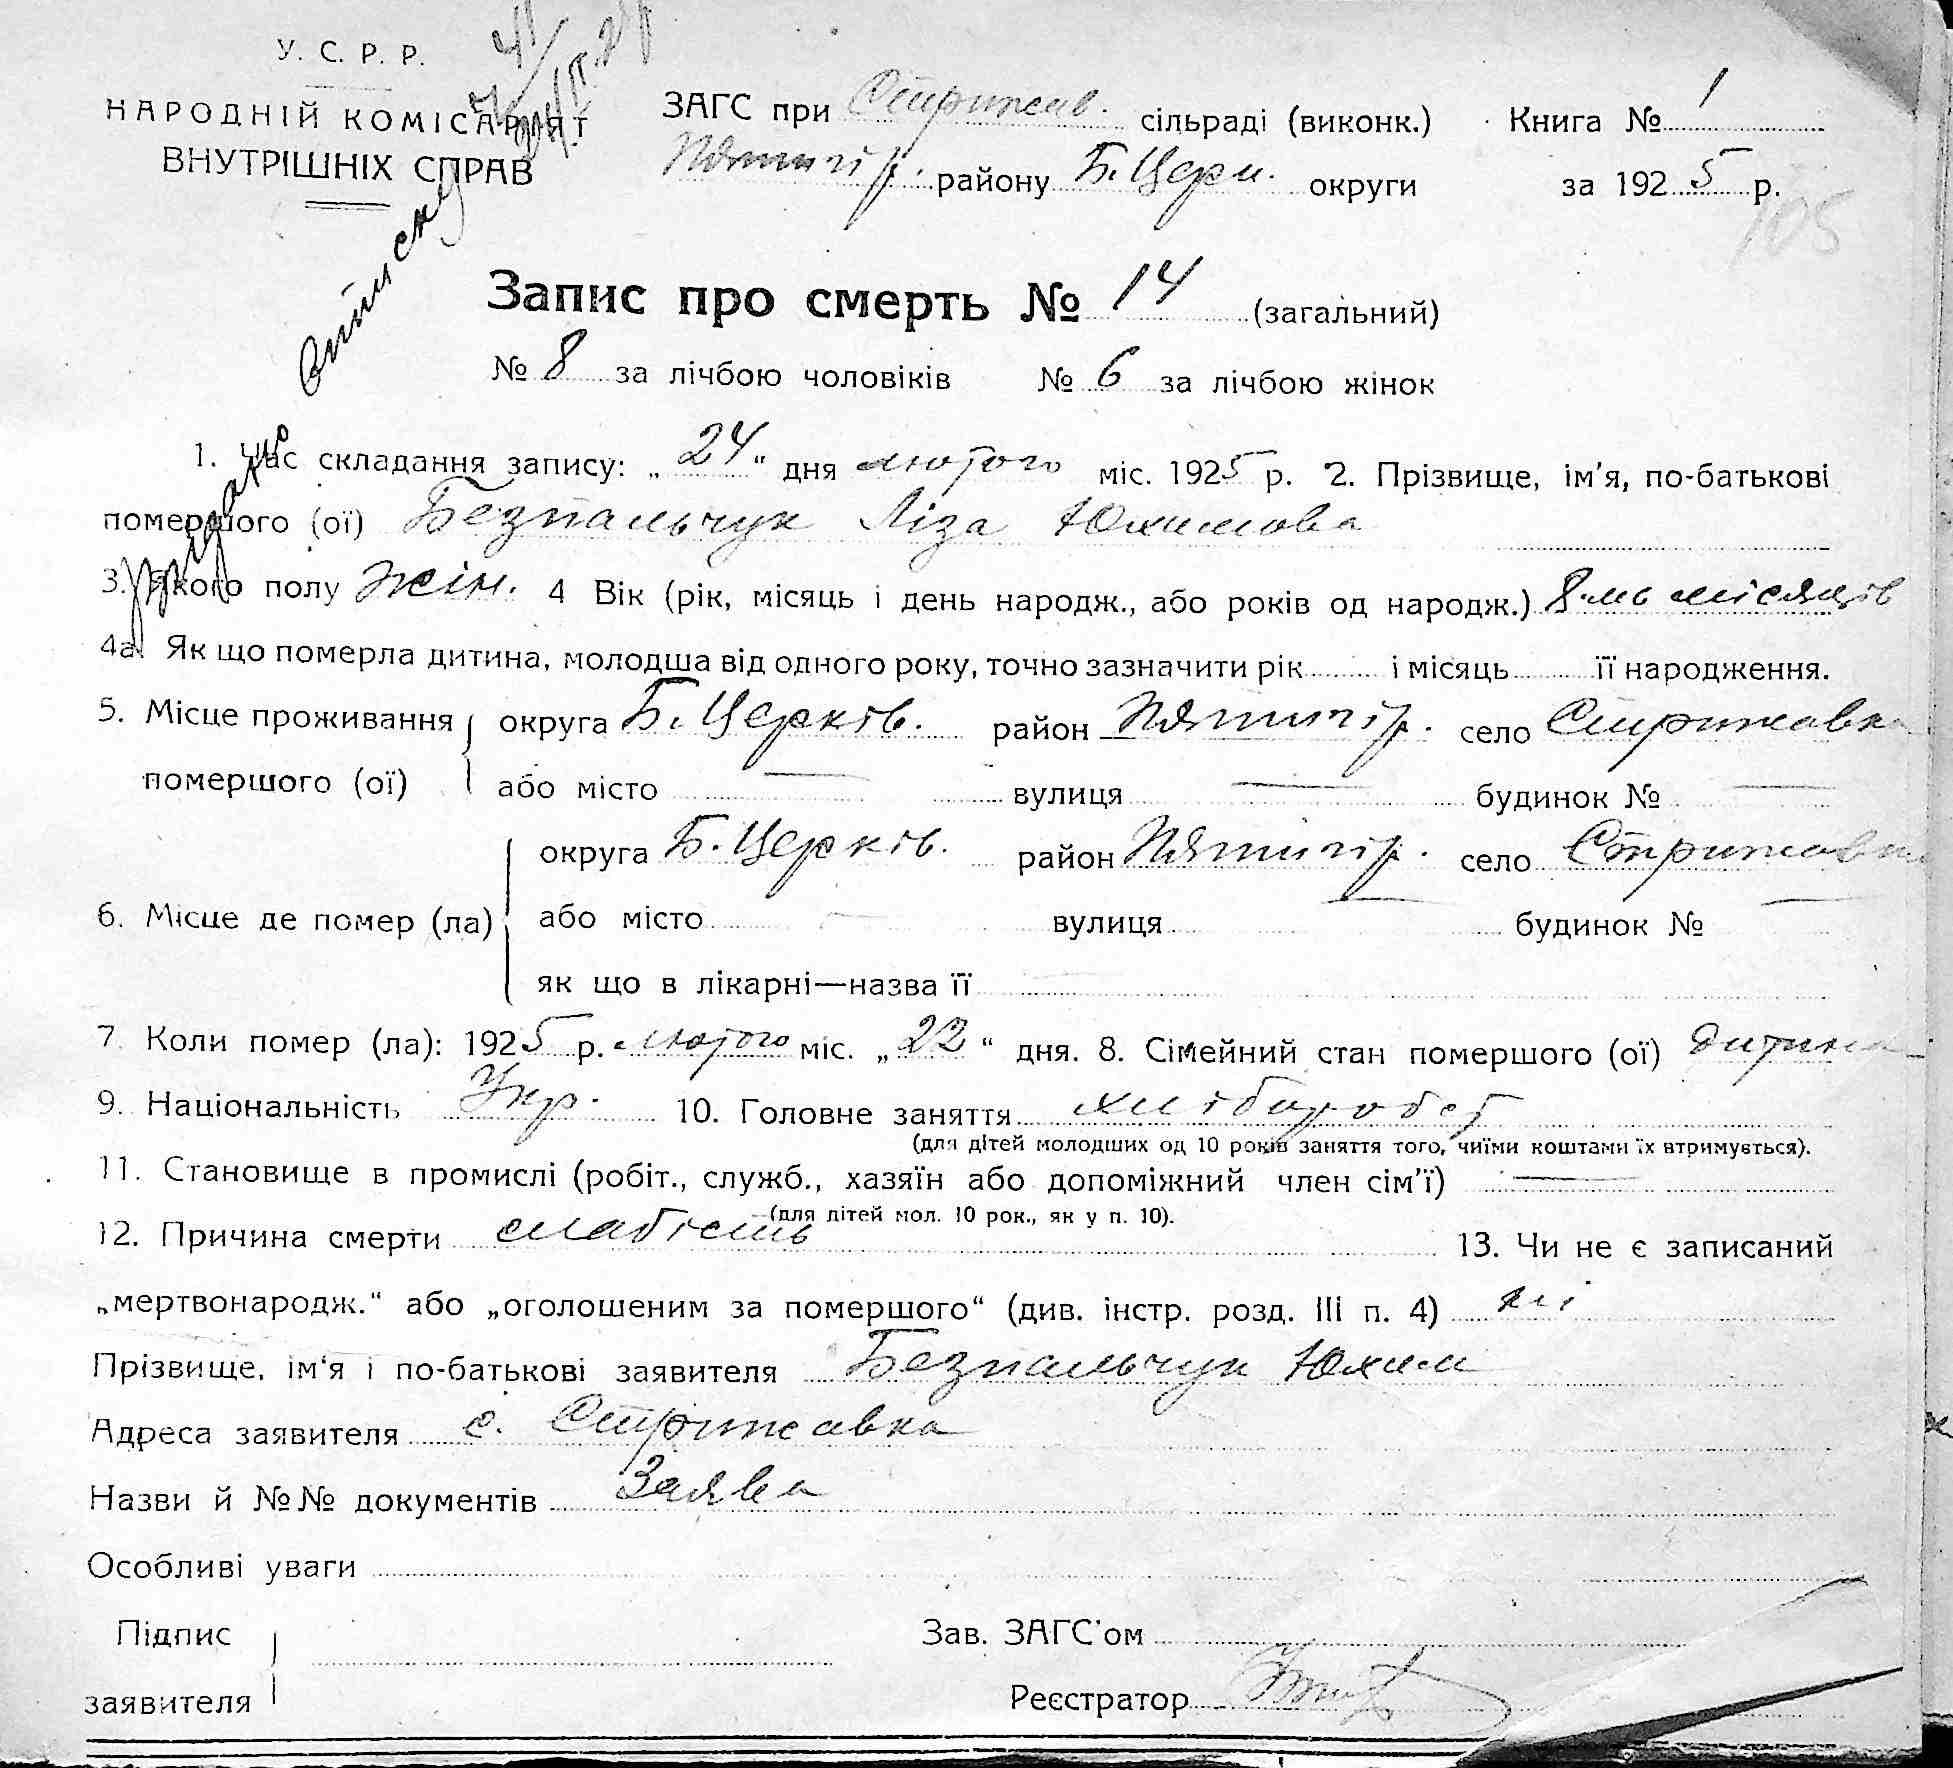 У. С. Р. Р.
НАРОДНІЙ КОМІСАРІЯТ
ВНУТРІШНІХ СПРАВ
ЗАГС при Стрижав. сільраді (виконк.) Книга № 1
Пятигір. району Б. Церк. округи за 1925 р.
105
Видано виписку
Запис про смерть № 14 (загальний)
№ 8 за лічбою чоловіків № 6 за лічбою жінок
1. Час складання запису: „24“ дня лютого міс. 1925 р. 2. Прізвище, ім'я, по-батькові
помершого (ої) Безпальчук Ліза Юхимова
3. Якого полу жін. 4 Вік (рік, місяць і день народж., або років од народж.) 8-мь місяців
4а. Як що померла дитина, молодша від одного року, точно зазначити рік і місяць її народження.
5. Місце проживання округа Б. Церків. район Пятигір. село Стрижавка
помершого (ої) або місто — вулиця — будинок № —
округа Б. Церків. район Пятигір. село Стрижавка
6. Місце де помер (ла) або місто вулиця — будинок № —
як що в лікарні—назва її
7. Коли помер (ла): 1925 р. лютого міс. „22“ дня. 8. Сімейний стан помершого (ої) дитина
9. Національність Укр. 10. Головне заняття хлібороб
(для дітей молодших од 10 років заняття того, чиїми коштами їх втримується).
11. Становище в промислі (робіт., служб., хазяїн або допоміжний член сім'ї) —
(для дітей мол. 10 рок., як у п. 10).
12. Причина смерти слабість 13. Чи не є записаний
„мертвонародж.“ або „оголошеним за помершого“ (див. інстр. розд. III п. 4) ні
Прізвище, ім'я і по-батькові заявителя Безпальчук Юхим
Адреса заявителя с. Стрижавка
Назви й №№ документів Заява
Особливі уваги
Підпис Зав. ЗАГС'ом
заявителя Реєстратор